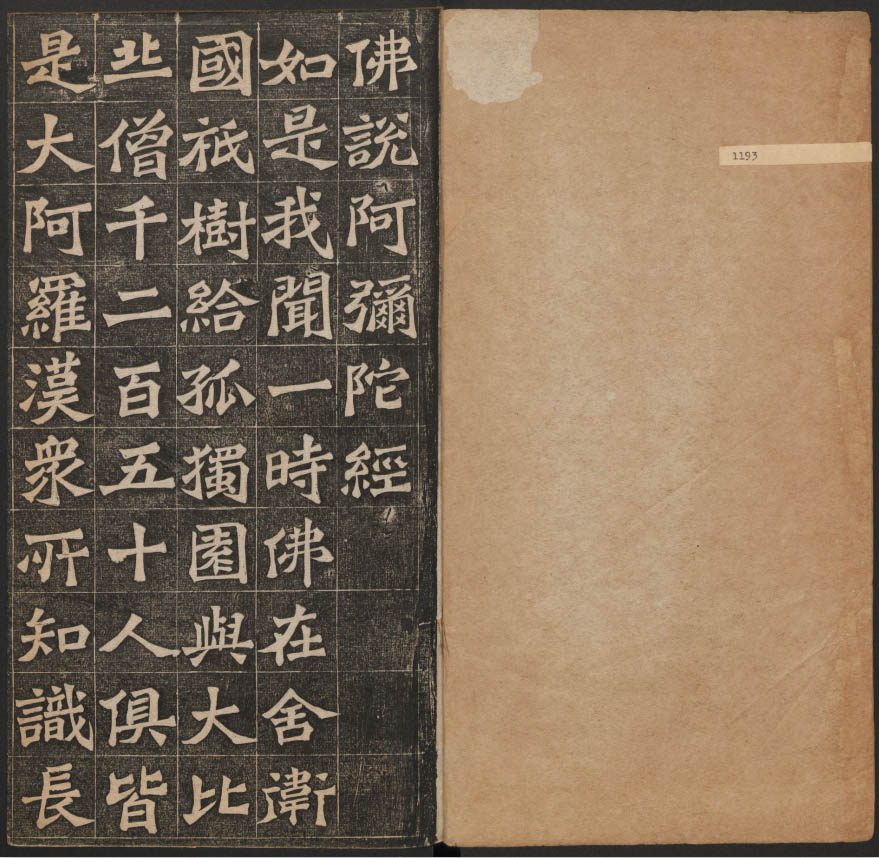 佛說阿彌陀經
如是我聞一時佛在舍衛
國祇樹給孤獨園與大比
丘僧千二百五十人俱皆
是大阿羅漢眾所知識長
1193